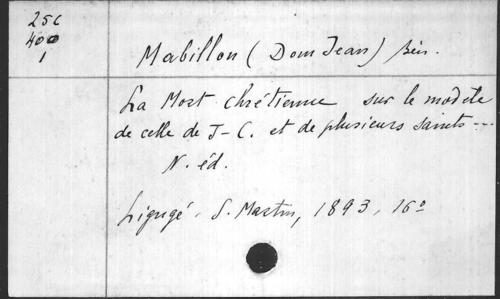 25c
400
1
Mabillon (Dom Jean) Bén.
La Mort chrétienne sur le modèle
de celle de J-C. et de plusieurs saints...
N. éd.
Ligugé, S. Martin, 1893, 16°